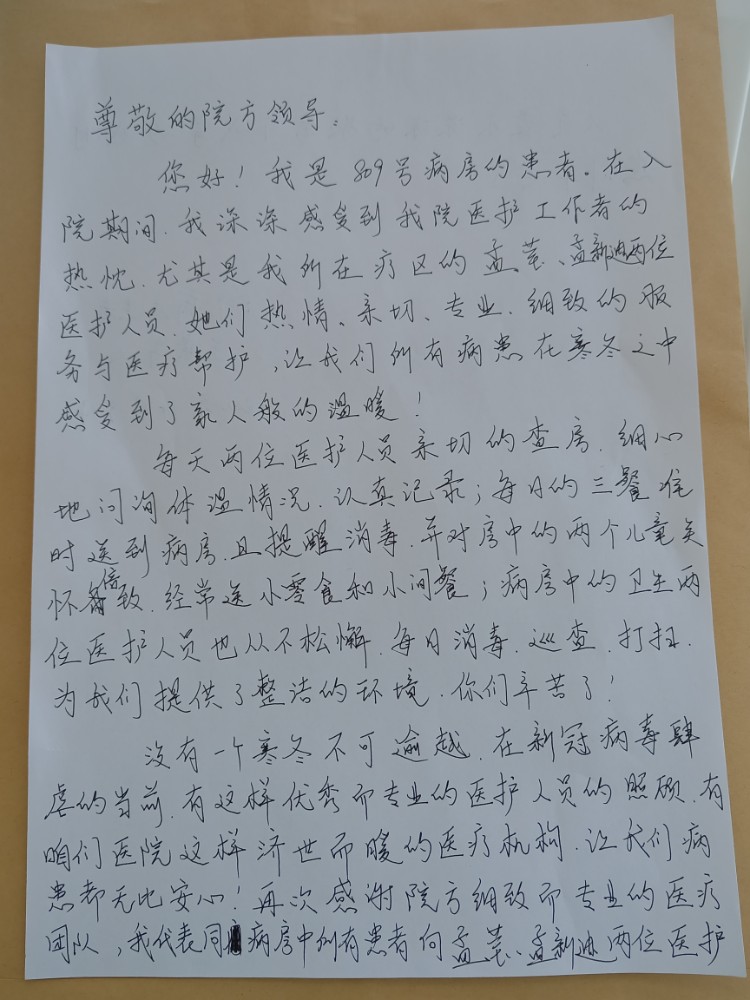 尊敬的院方领导：
您好！我是809号病房的患者。在入
院期间，我深深感受到我院医护工作者的
热忱，尤其是我所在疗区的孟莹、孟新迪两位
医护人员，她们热情、亲切、专业、细致的服
务与医疗帮护，让我们所有病患在寒冬之中
感受到了家人般的温暖！
每天两位医护人员亲切的查房，细心
地问询体温情况，认真记录；每日的三餐准
时送到病房，且提醒消毒，并对房中的两个儿童关
怀倍致，经常送小零食和小间餐；病房中的卫生两
位医护人员也从不松懈，每日消毒、巡查、打扫，
为我们提供了整洁的环境，你们辛苦了！
没有一个寒冬不可逾越，在新冠病毒肆
虐的当前，有这样优秀而专业的医护人员的照顾，有
咱们医院这样济世而暖的医疗机构，让我们病
患都无比安心！再次感谢院方细致而专业的医疗
团队，我代表同病房中所有患者向孟莹、孟新迪两位医护